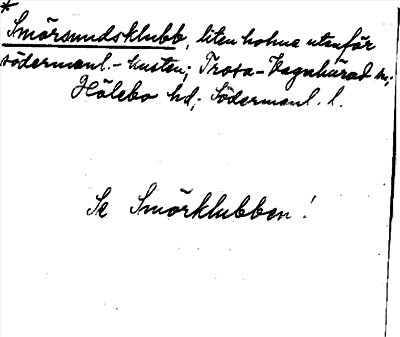 *
Smörsundsklubb, liten holme utenför
södermanl.-kusten; Trosa-Vagnhärad sn;
Hölebo hd; Södermanl. l.
Se Smörklubben!